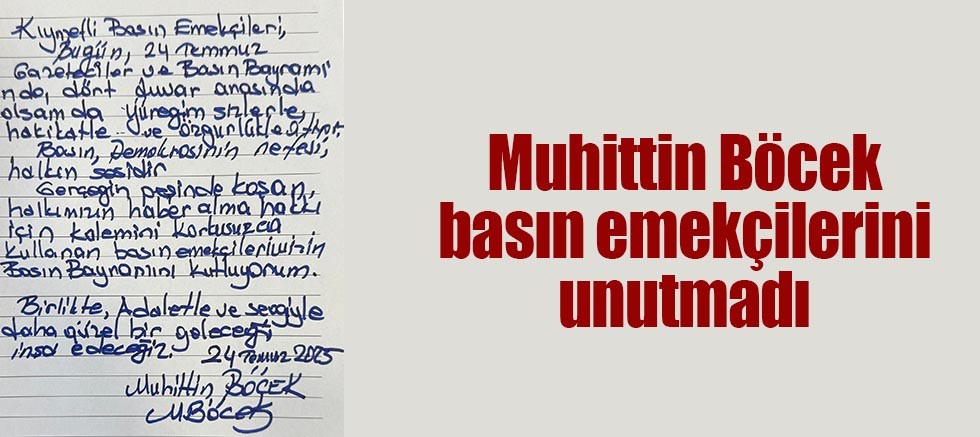 Kıymetli Basın Emekçileri,
Bugün, 24 Temmuz
Gazeteciler ve Basın Bayramı
nda, dört duvar arasında
olsam da yüreğim sizlerle,
hakikatle ve özgürlükle atıyor.
Basın, Demokrasinin nefesi,
halkın sesidir
Gerçeğin peşinde koşan,
halkımızın haber alma hakkı
için kalemini korkusuzca
kullanan basın emekçilerimizin
Basın Bayramını kutluyorum.
Birlikte, Adaletle ve sevgiyle
daha güzel bir geleceği
inşa edeceğiz. 24 Temuz 2025
Muhittin BÖÇEK
MBÖCEK
Muhittin Böcek
basın emekçilerini
unutmadı